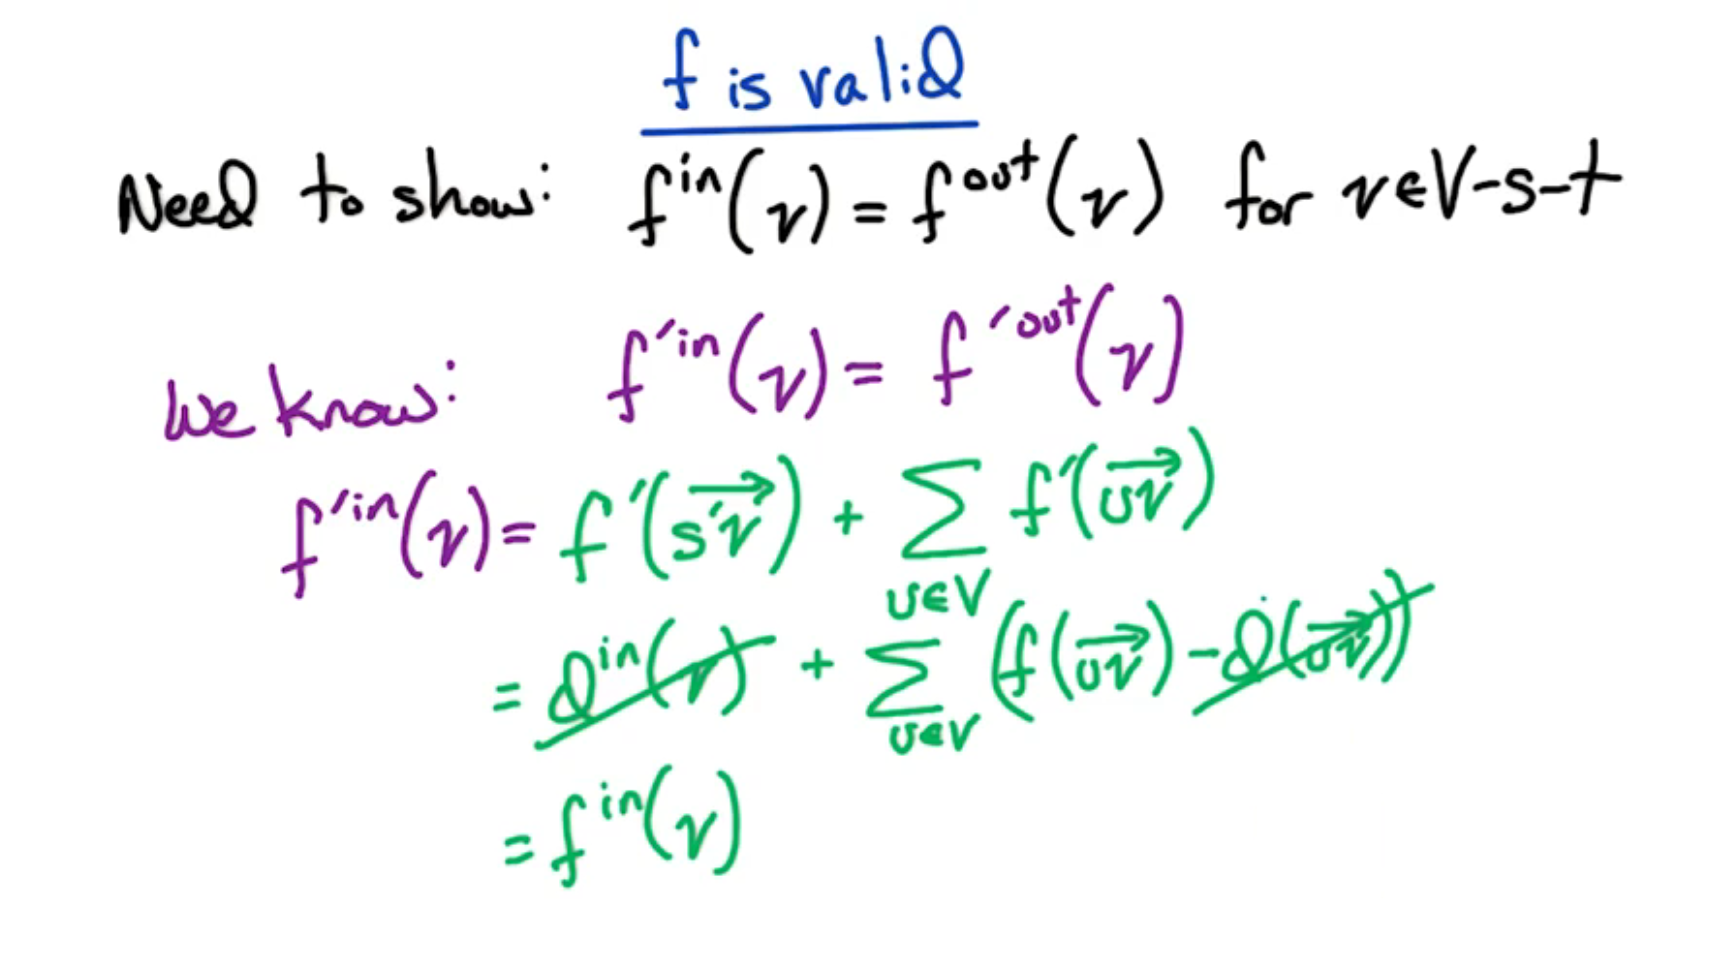 f is valid
Need to show: f^in(v) = f^out(v) for v∈V-s-t
We know: f'^in(v) = f'^out(v)
f'^in(v) = f'(s'v→) + ∑_{u∈V} f'(uv→)
= d^in(v) + ∑_{u∈V} (f(uv→) - d(uv→))
= f^in(v)